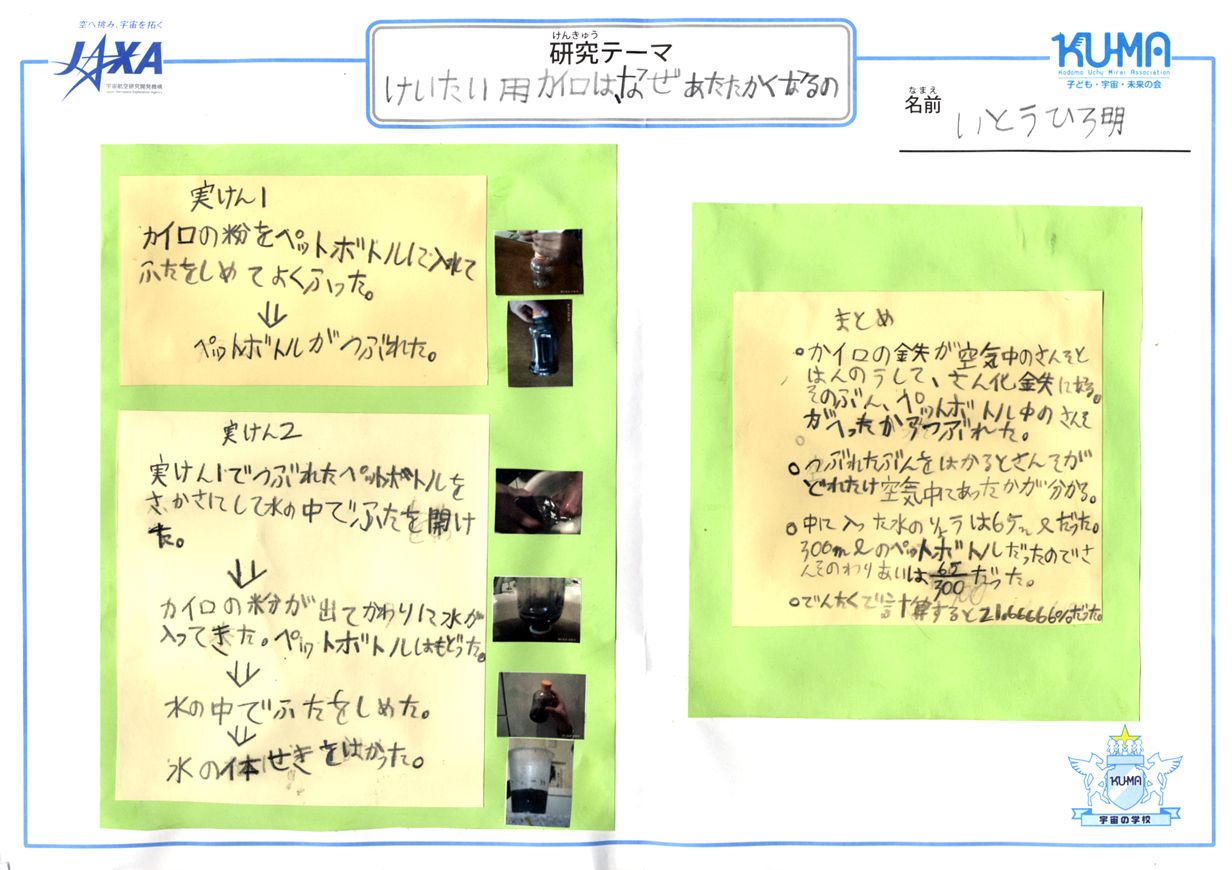 空へ挑み、宇宙を拓く
JAXA
宇宙航空研究開発機構
Japan Aerospace Exploration Agency
けんきゅう
研究テーマ
けいたい用カイロは、なぜあたたかくなるの
KU-MA
Kodomo Uchu Mirai Association
子ども・宇宙・未来の会
なまえ
名前
いとうひろ明
実けん1
カイロの粉をペットボトルに入れて
ふたをしめてよくふった。
⇓
ペットボトルがつぶれた。
実けん2
実けん1でつぶれたペットボトルを
さかさにして水の中でふたを開け
た。
⇓
カイロの粉が出てかわりに水が
入ってきた。ペットボトルはもどった。
⇓
水の中でふたをしめた。
⇓
水の体せきをはかった。
まとめ
○カイロの鉄が空気中のさんそと
はんのうして、さん化鉄になる。
そのぶん、ペットボトル中のさんそ
がへったからつぶれた。
○つぶれたぶんをはかるとさんそが
どれだけ空気中であったかが分かる。
○中に入った水のりょうは65mlだった。
300mlのペットボトルだったのでさ
んそのわりあいは65/300だった。
○でんたくで計算すると21.66666%だった。
KU-MA
宇宙の学校